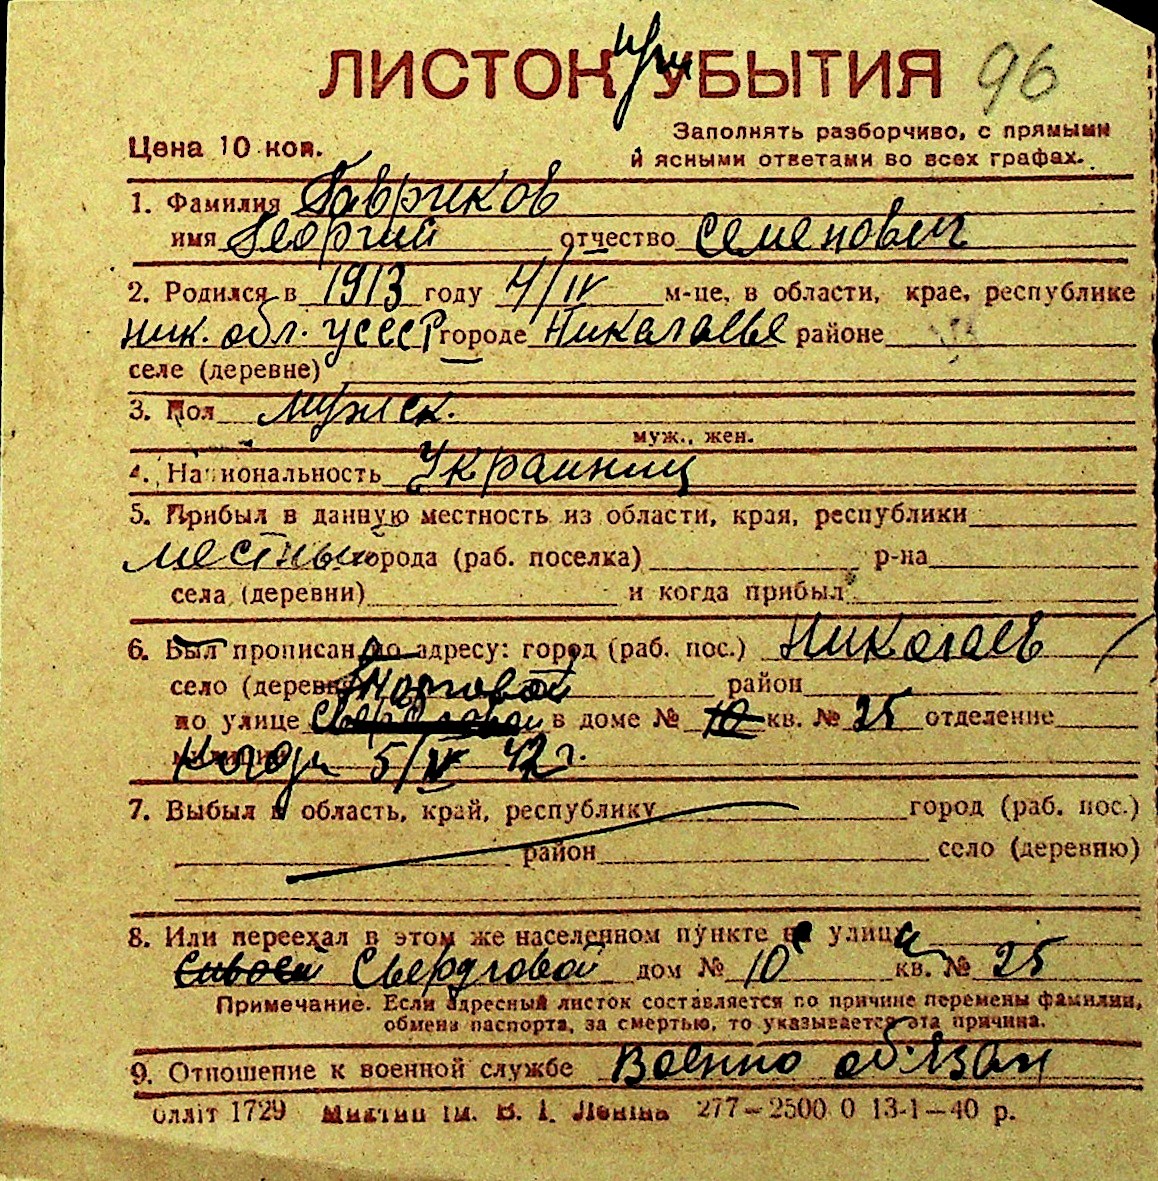 ЛИСТОК при УБЫТИЯ 96
Цена 10 коп.
Заполнять разборчиво, с прямыми
и ясными ответами во всех графах.
1. Фамилия Гавриков
имя Георгий отчество Семенович
2. Родился в 1913 году 4/IV м-це, в области, крае, республике
ник. обл. УССР городе Николаеве районе
селе (деревне)
3. Пол мужск.
муж., жен.
4. Национальность Украинец
5. Прибыл в данную местность из области, края, республики
местный города (раб. поселка) р-на
села (деревни) и когда прибыл
6. Был прописан по адресу: город (раб. пос.) Николаев
село (деревня) Торговой район
по улице Свердловой в доме № 10 кв. № 25 отделение
5/IV 42 г.
7. Выбыл в область, край, республику город (раб. пос.)
район село (деревню)
8. Или переехал в этом же населенном пункте на улицу
Свердловой дом № 10 кв. № 25
Примечание. Если адресный листок составляется по причине перемены фамилии,
обмена паспорта, за смертью, то указывается эта причина.
9. Отношение к военной службе Военно обязан
Оллiт 1729 iм. В. I. Ленiна 277—2500 0 13-1—40 р.